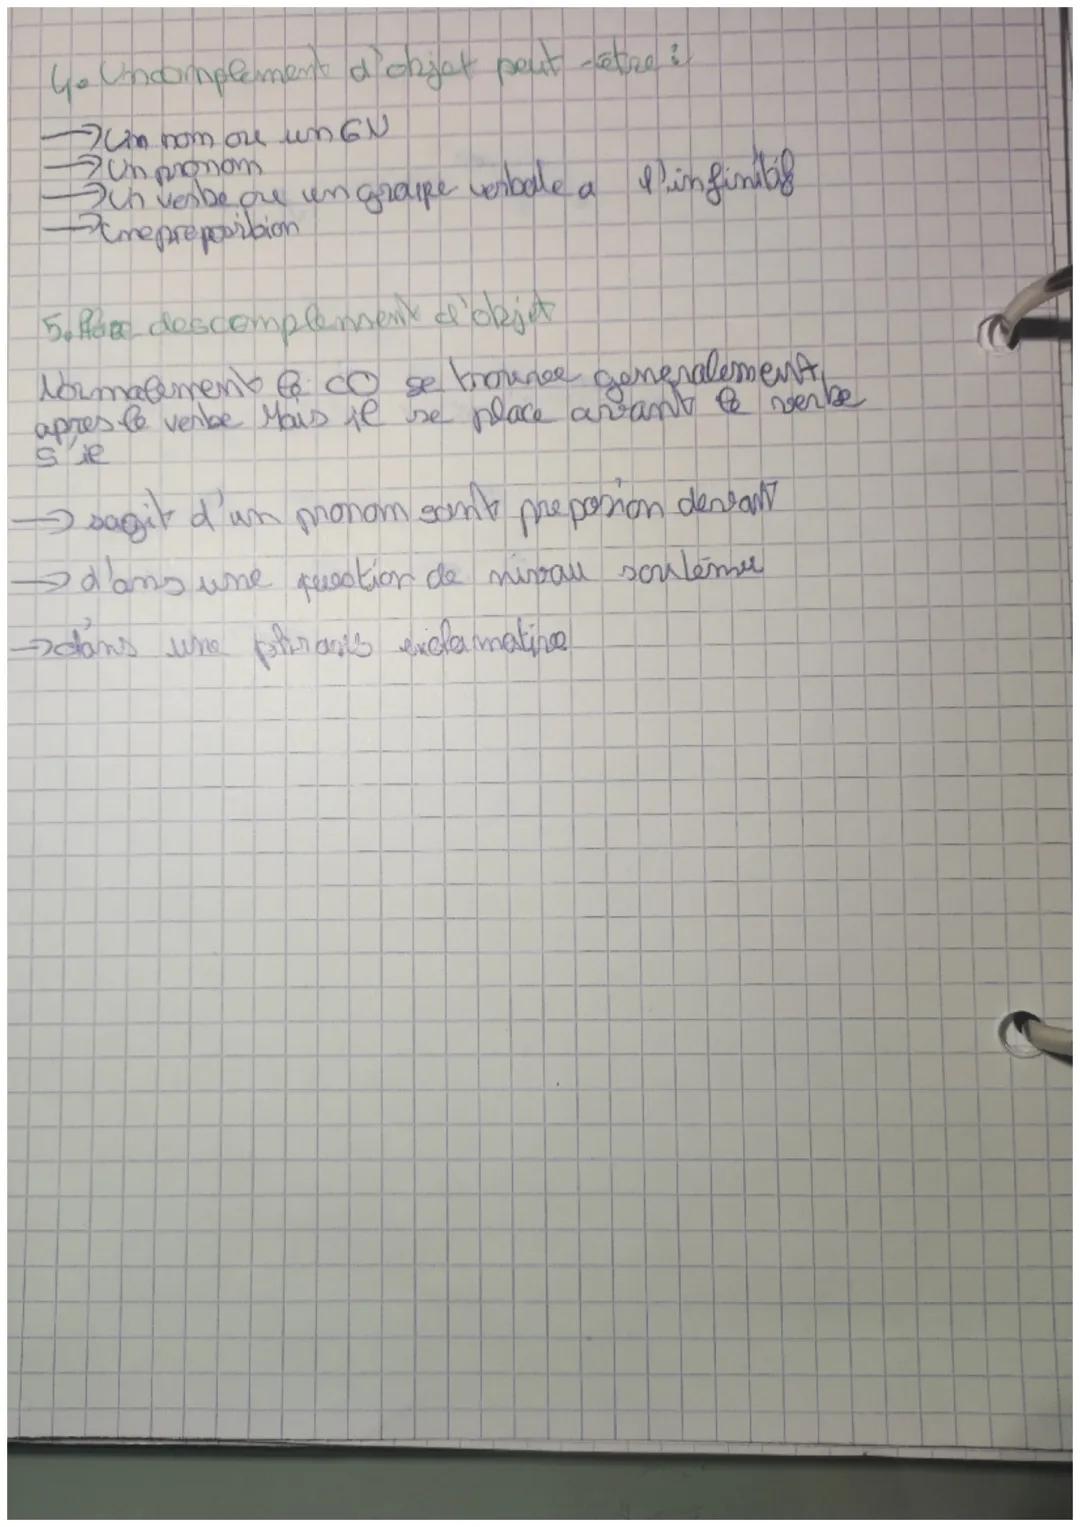 4. Un complement d'objet peut être :
→ Un nom ou un GN
→ Un pronom
→ Un verbe ou un groupe verbale a l'infinitif
→ Une preposition
5. Place des complement d'objet
Normalement le CO se trouvee generalement
apres le verbe Mais il se place avant le verbe
s'il
→ sagit d'un pronom sant preposion devant
→ d'ans une question de niveau soulenue
→ dans une phrases exclamative